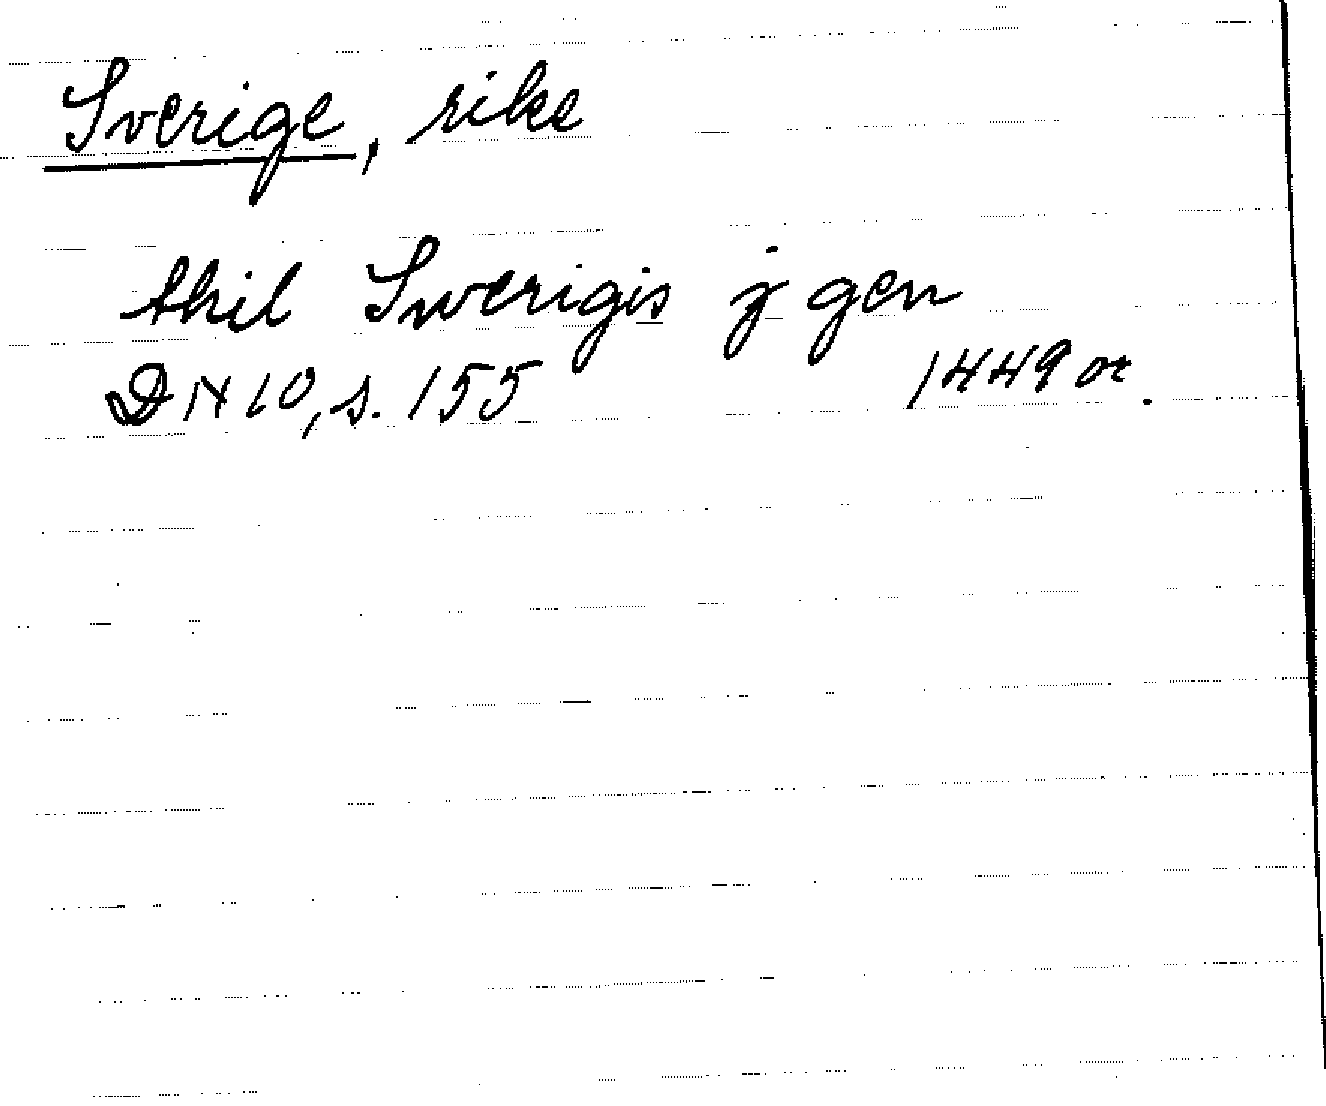 Sverige, rike
thil Swerigis j gen
DN 10, s. 155 1449 or.